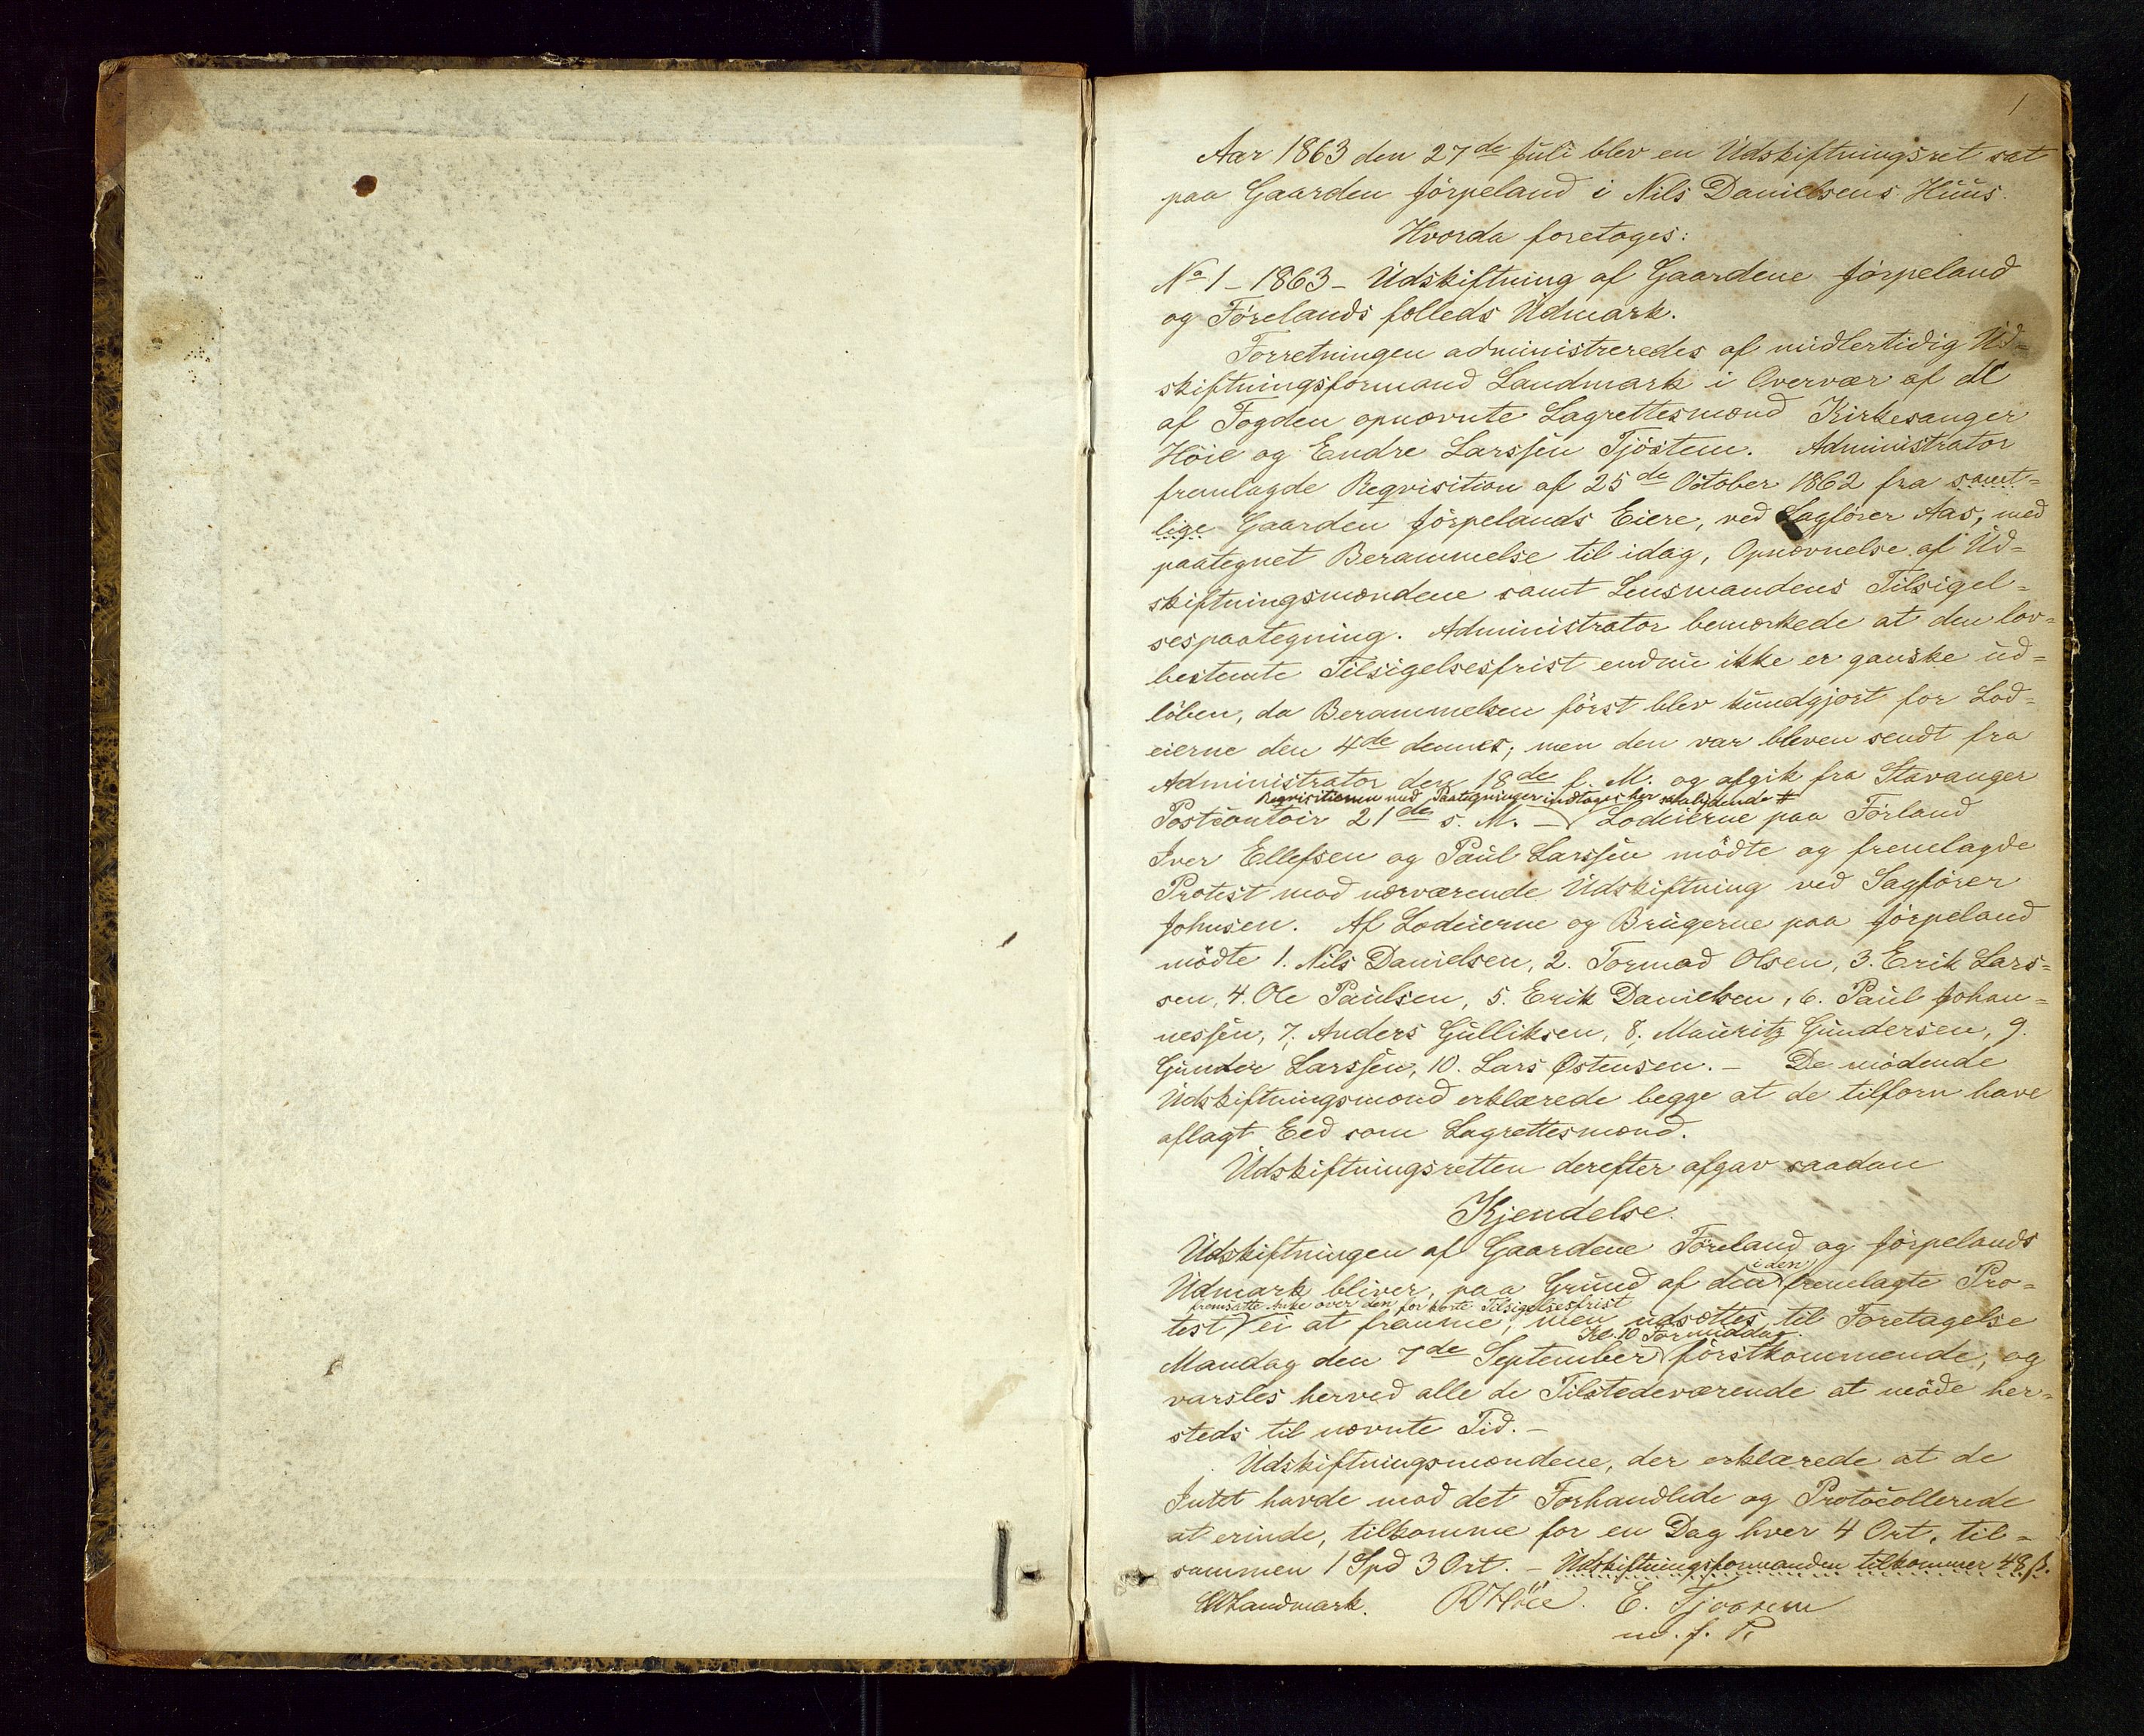 1
Aar 1863 den 27de Juli blev en Udskiftningsret sat
paa Gaarden Jørpeland i Nils Danielsens Huus.
Hvorda foretages:
No 1 - 1863 - Udskiftning af Gaardene Jørpeland
og Førelands fælleds Udmark.
Forretningen administreredes af midlertidig Ud-
skiftningsformand Landmark i Overvær af de
af Fogden opnævnte Lagrettesmænd Kirkesanger
Höie og Endre Larssen Tjöstem. Administrator
fremlagde Reqvisition af 25de October 1862 fra samt-
lige Gaarden Jörpelands Eiere, ved Sagfører Aas, med
paategnet Berammelse til idag, Opnævnelse af Ud-
skiftningsmændene samt Lensmandens Tilsigel-
sespaategning. Administrator bemærkede at den lov-
bestemte Tilsigelsesfrist endnu ikke er ganske ud-
löben, da Berammelsen først blev kundgjort for Lod-
eierne den 4de dennes; men den var bleven sendt fra
Administrator den 18de f. M. og afgik fra Stavanger
Reqvisitionen med Paategninger indtages her saalydende #
Postcontoir 21de s. M. - Lodeierne paa Förland
Iver Ellefsen og Paul Larssen mödte og fremlagde
Protest mod nærværende Udskiftning ved Sagfører
Johnsen. Af Lodeierne og Brugerne paa Jörpeland
mödte 1. Nils Danielsen, 2. Tormod Olsen, 3. Erik Lars-
sen, 4. Ole Paulsen, 5. Erik Danielsen, 6. Paul Johan-
nessen, 7. Anders Gulliksen, 8. Mauritz Gundersen, 9.
Gunder Larssen, 10. Lars Østensen. - De mödende
Udskiftningsmænd erklærede begge at de tilforn have
aflagt Eed som Lagrettesmænd.
Udskiftningsretten derefter afgav saadan
Kjendelse.
Udskiftningen af Gaardene Föreland og Jörpelands
i den
Udmark bliver, paa Grund af den fremlagte Pro-
fremsatte Anke over den for korte Tilsigelsesfrist
test ei at fremme, men udsættes til Foretagelse
Kl. 10 Formiddag.
Mandag den 7de September förstkommende, og
varsles herved alle de Tilstedeværende at möde her-
steds til nævnte Tid. -
Udskiftningsmændene, der erklærede at de
Intet havde mod det Forhandlede og Protocollerede
at erindre, tilkomme for en Dag hver 4 Ort, til-
sammen 1 Spd 3 Ort. - Udskiftningsformanden tilkommer 48 ß.
Landmark. R Höie. E. Tjostem
m. f. P.